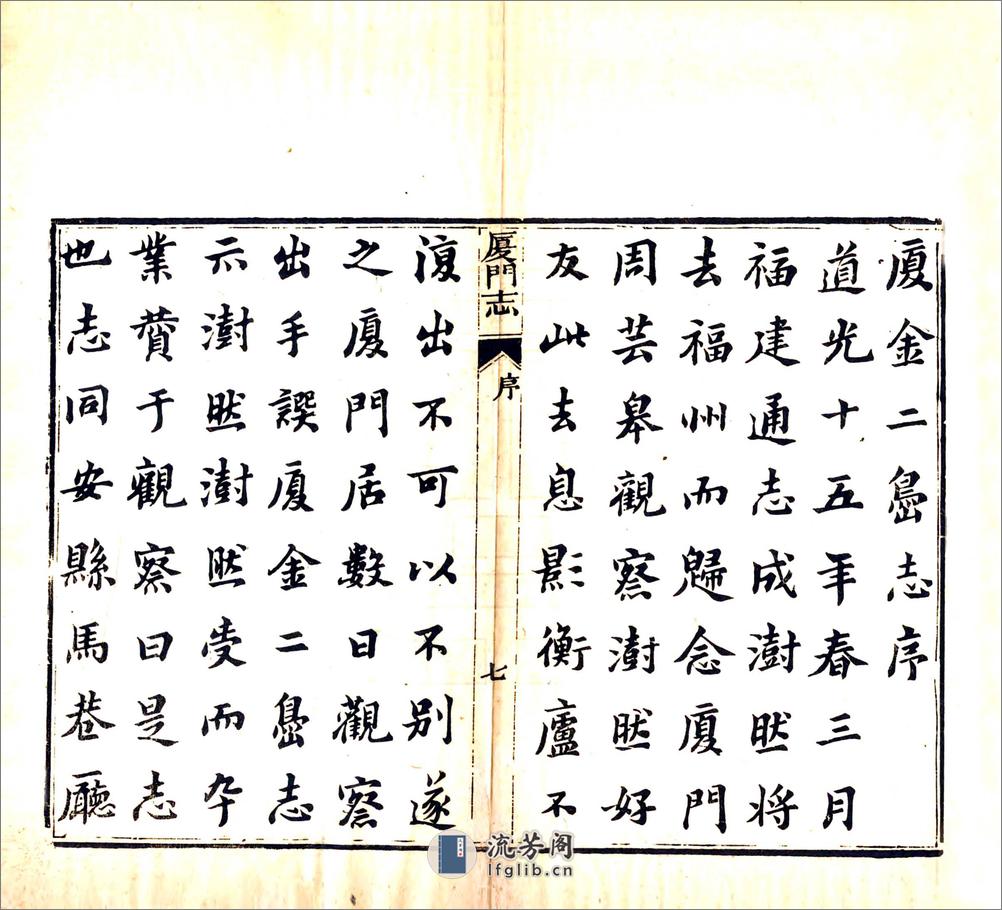 廈金二㠀志序
道光十五年春三月
福建通志成澍然將
去福州而歸念廈門
周芸皋觀察澍然好
友此去息影衡廬不
廈門志
序
七
復出不可以不別遂
之廈門居數日觀察
出手譔廈金二㠀志
示澍然澍然受而卒
業贊于觀察曰是志
也志同安縣馬巷廳
流芳阁
lfglib.cn